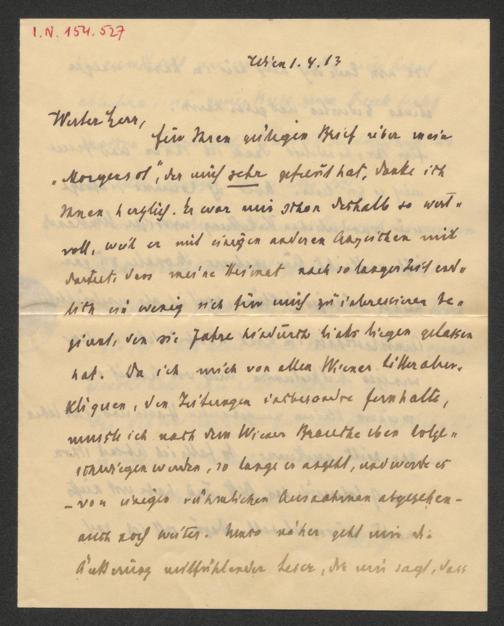 I.N. 154.527
Wien 1.4.13
Werter Herr,
für Ihren gütigen Brief über mein
„Morgenrot", der mich sehr gefreut hat, danke ich
Ihnen herzlich. Er war mir schon deshalb so wert-
voll, weil er mit einigen anderen Anzeichen mir
dartut, dass meine Heimat nach so langer Zeit end-
lich ein wenig sich für mich zu interessieren be-
ginnt, den sie Jahre hindurch links liegen gelassen
hat. Da ich mich von allen Wiener Litteraten-
Kliquen, den Zeitungen insbesondre fernhalte,
musste ich nach dem Wiener Brauche eben totge-
schwiegen werden, so lange es angeht, und werde es
- von einigen rühmlichen Ausnahmen abgesehen -
auch noch weiter. Umso näher geht mir die
Äußerung mitfühlender Leser, die mir sagt, dass